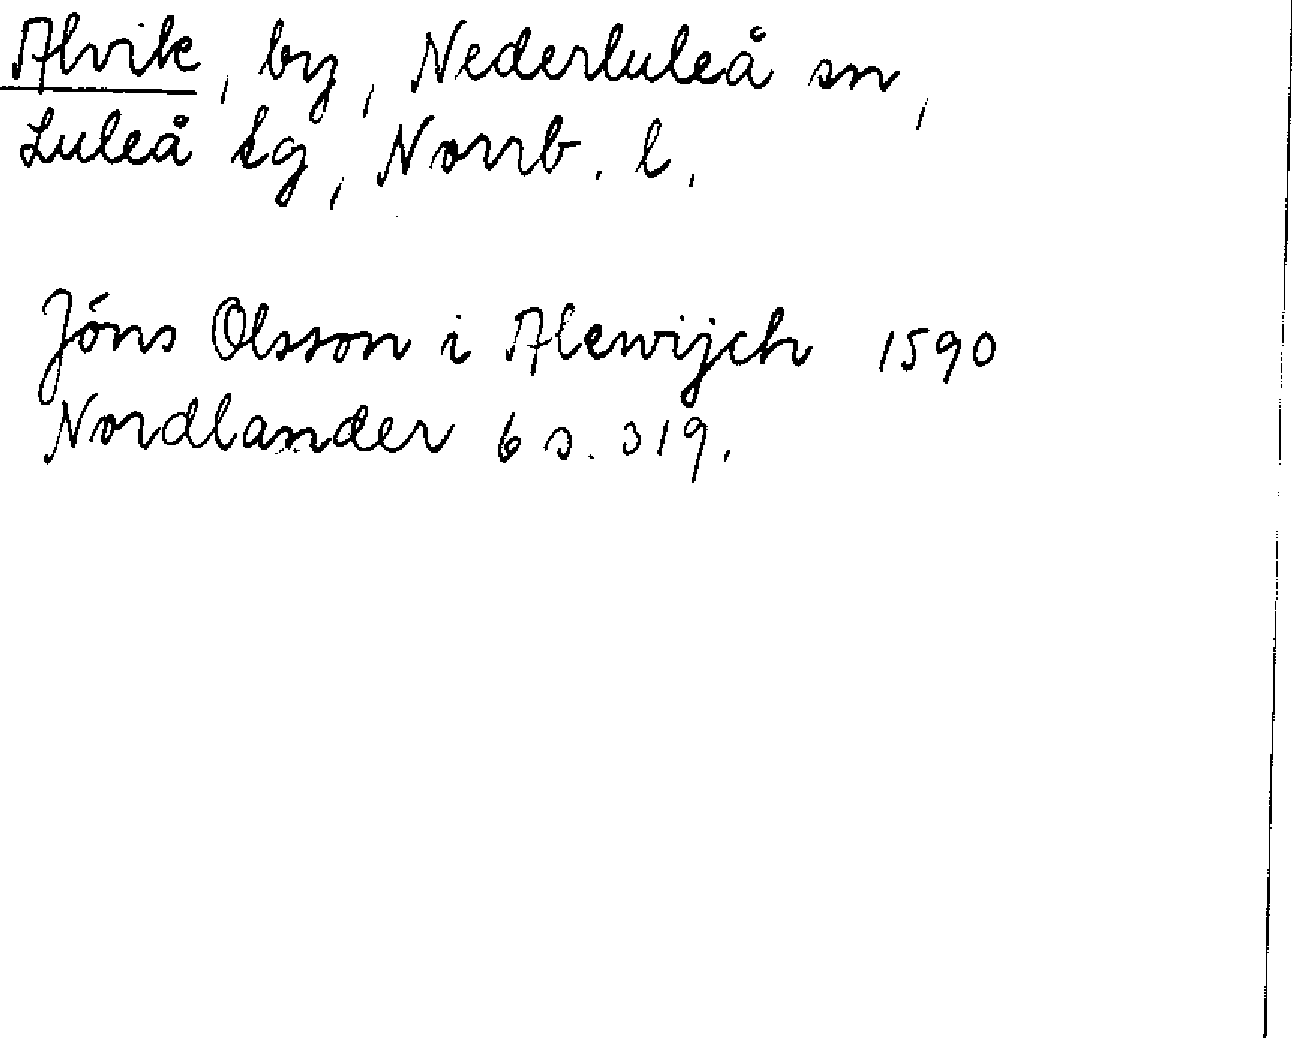 Alvik, by, Nederluleå sn,
Luleå tg, Norrb. l.
Jóns Olsson i Alewijch 1590
Nordlander 6 s. 319.